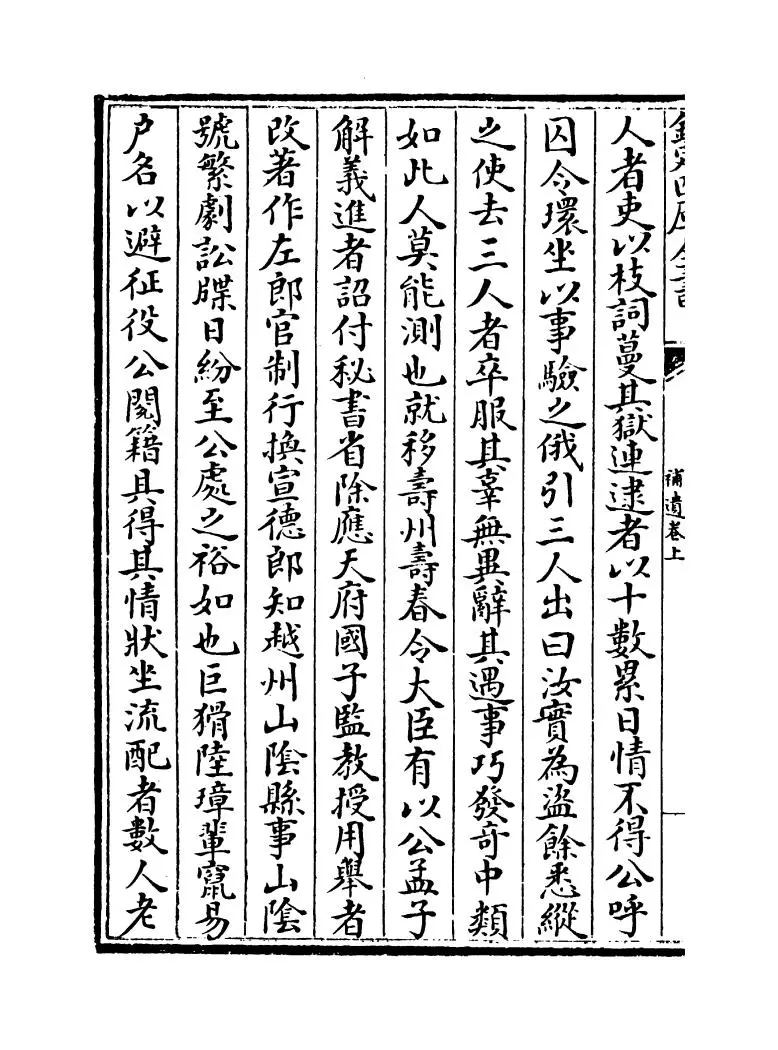 欽定四庫全書
補遺卷上
人者吏以枝詞蔓其獄連逮者以十數累日情不得公呼
囚令環坐以事驗之俄引三人出曰汝實為盜餘悉縱
之使去三人者卒服其辜無異辭其遇事巧發奇中類
如此人莫能測也就移壽州壽春令大臣有以公孟子
解義進者詔付秘書省除應天府國子監教授用舉者
改著作左郎官制行換宣德郎知越州山隂縣事山隂
號繁劇訟牒日紛至公處之裕如也巨猾陸璋輩竄易
户名以避征役公閱籍具得其情狀坐流配者數人老